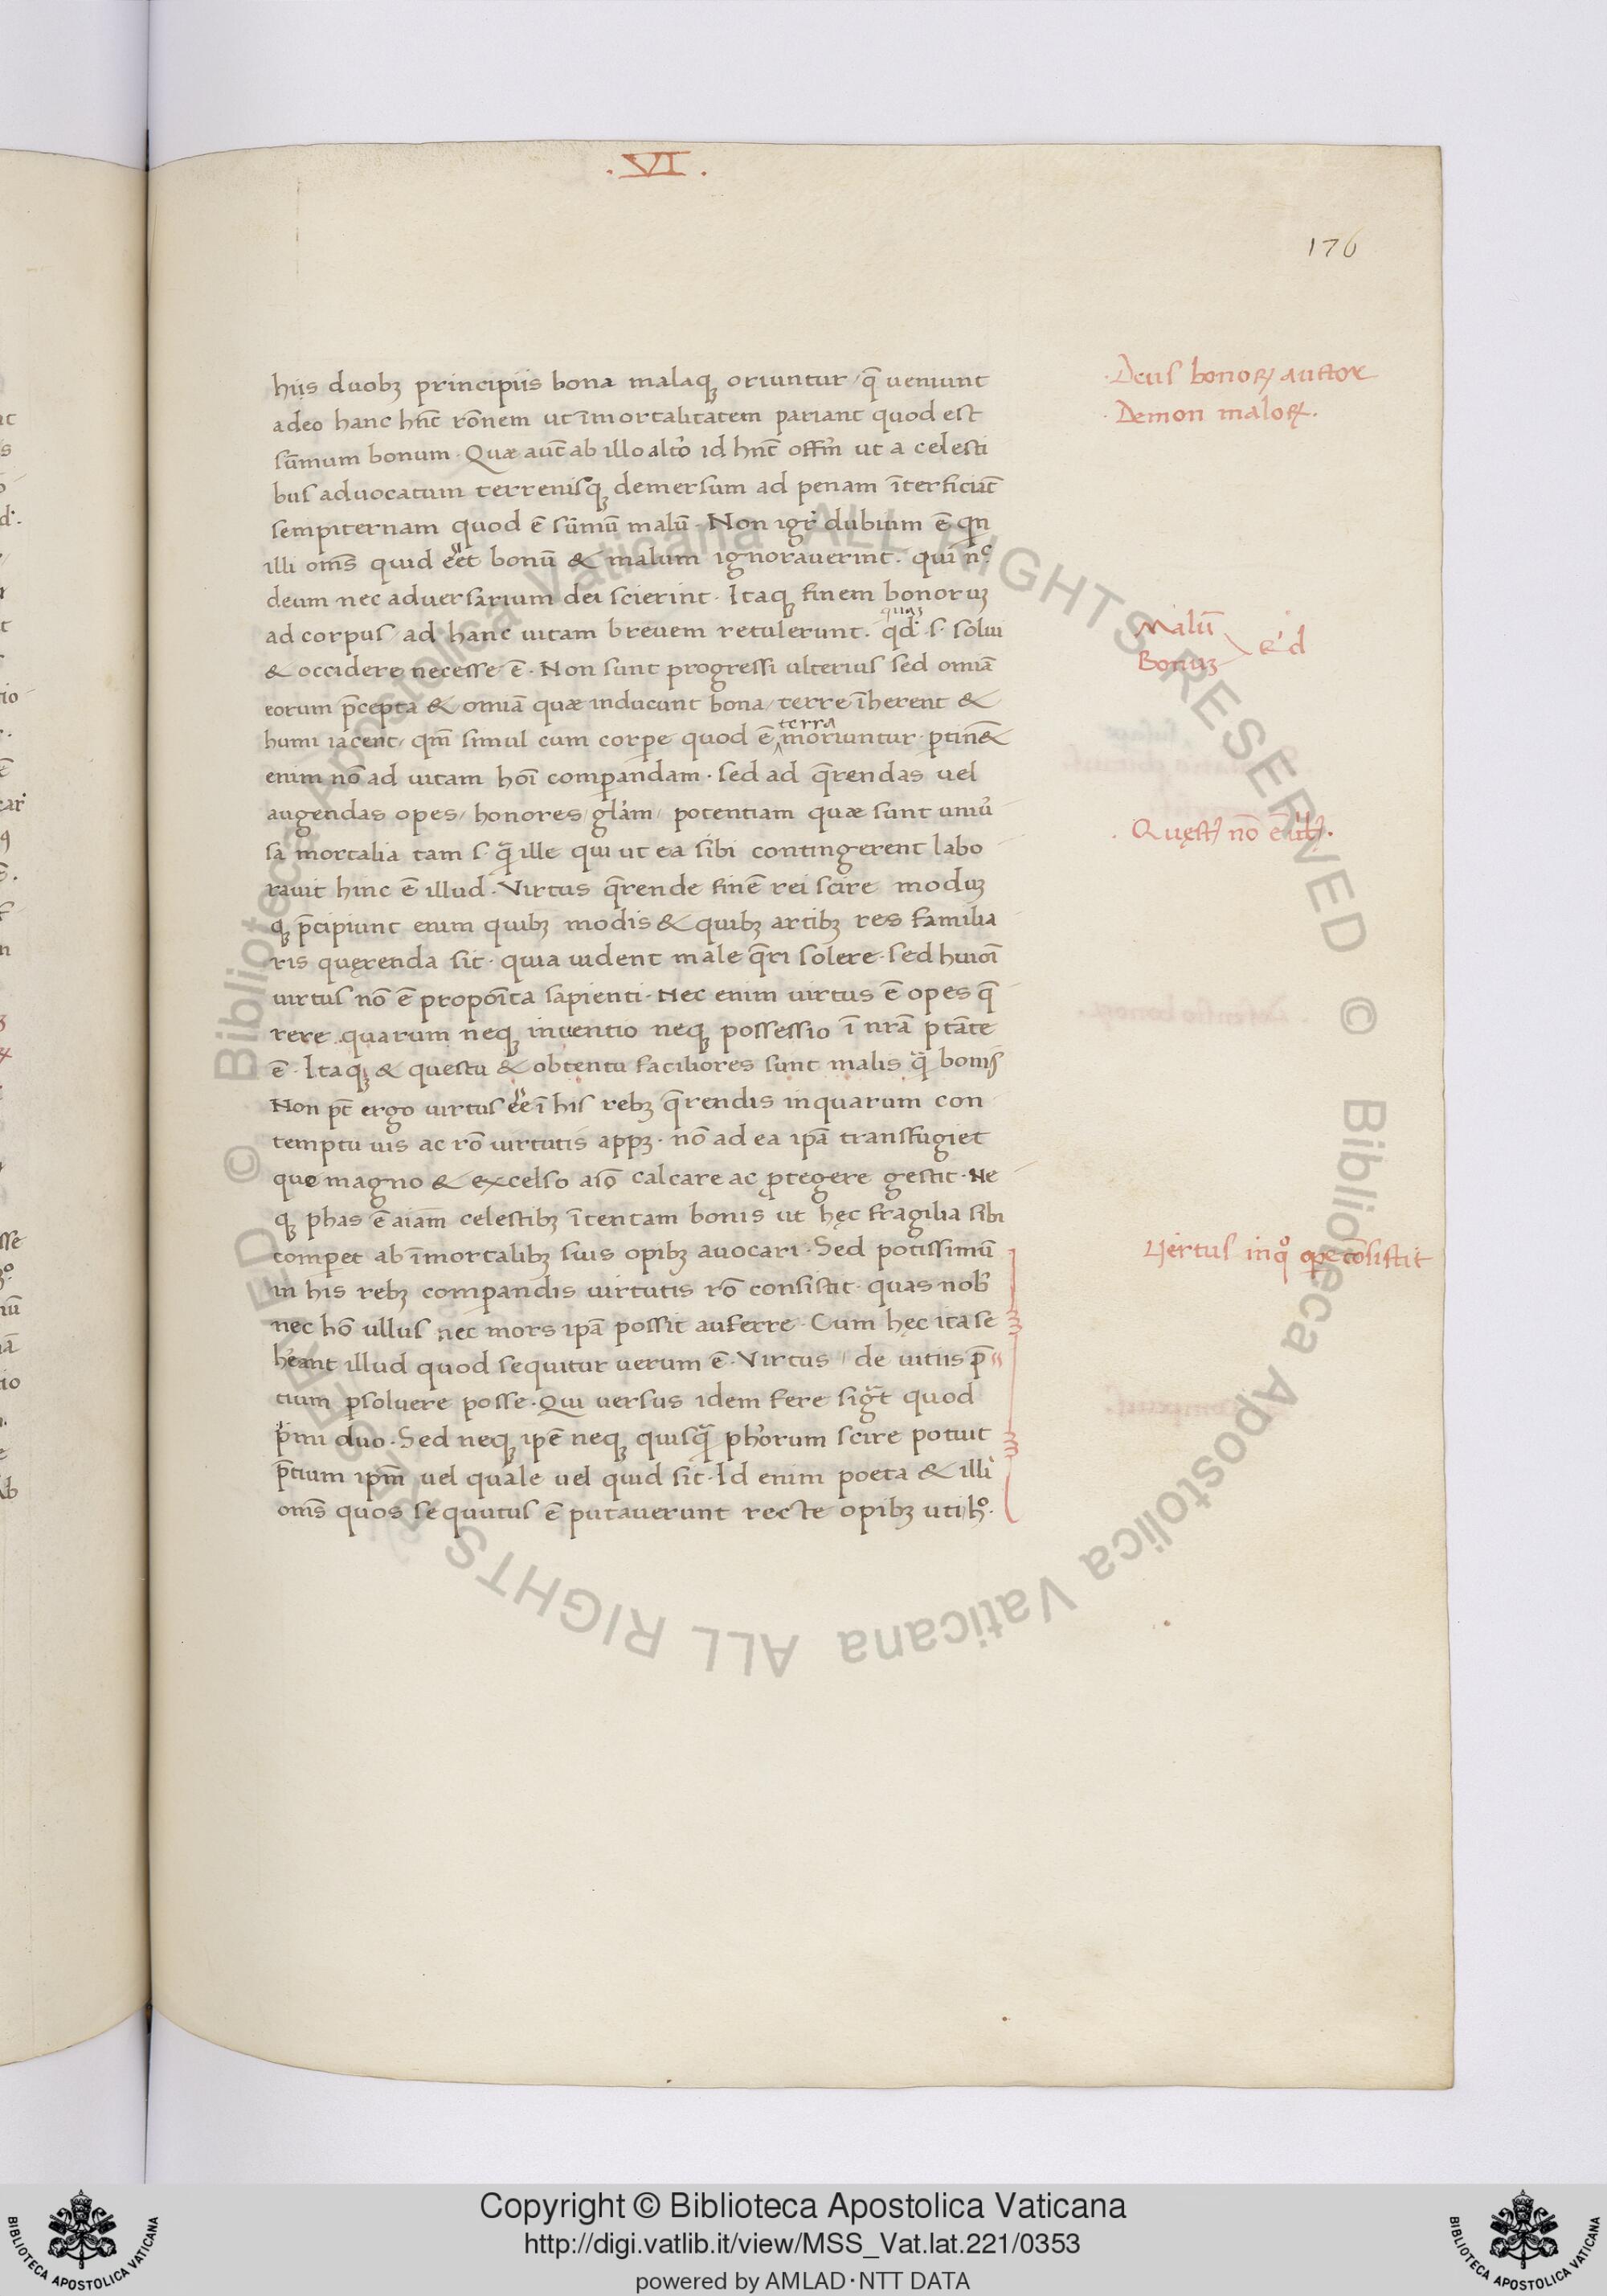 .VI.
176
hiis duobꝫ principiis bona malaqꝫ oriuntur / q̄ ueniunt
adeo hanc hn̄t rōnem ut īmortalitatem pariant quod est
sūmum bonum . Quæ aut̄ ab illo alt̓o id hn̄t offm̄ ut a celesti
bus aduocatum terrenisqꝫ demersum ad penam īterficiāt
sempiternam quod ē sūmū malū . Non igr̄ dubium ē qn
illi oms̄ quid eēt bonū & malum ignorauerint . qui n̄c
deum nec aduersarium dei scierint . Itaqꝫ finem bonoruꝫ
ad corpus / ad hanc uitam breuem retulerunt . quaꝫ qd̓ . s . solui
& occidere necesse ē . Non sunt progressi ulterius sed omīa
eorum p̄cepta & omīa quæ inducunt bona / terre īherent &
humi iacent / qm̄ simul cum corpe quod ē terra moriuntur . ptin&
enim nō ad uitam hoī compandam . sed ad q̄rendas uel
augendas opes / honores / glām / potentiam quæ sunt uniu̓
sa mortalia tam s . q̄ ille qui ut ea sibi contingerent labo
rauit hinc ē illud . Virtus q̄rende finē rei scire moduꝫ
qꝫ p̄cipiunt enim quibꝫ modis & quibꝫ artibꝫ res familia
ris quęrenda sit . quia uident male q̄ri solere . sed huiōī
uirtus nō ē propoīta sapienti . Nec enim uirtus ē opes q̄
rere quarum neqꝫ inuentio neqꝫ possessio ī nrā ptāte
ē . Itaqꝫ & questu & obtentu faciliores sunt malis q̄ bonis
Non pt̄ ergo uirtus eē ī his rebꝫ q̄rendis in quarum con
temptu uis ac rō uirtutis appꝫ . nō ad ea ipā transfugiet
que magno & excelso aīo calcare ac ptegere gestit . Ne
qꝫ phas ē aiam̄ celestibꝫ ītentam bonis ut hęc fragilia sibi
compet ab īmortalibꝫ suis opibꝫ auocari . Sed potissimū
in his rebꝫ compandis uirtutis rō consistit . quas nob̓
nec hō ullus nec mors ipā possit auferre . Cum hęc ita se
hēant illud quod sequitur uerum ē . Virtus / de uitiis p̄
tium psoluere posse . Qui uersus idem fere sigt̄ quod
pimi duo . Sed neqꝫ ipē neqꝫ quisq̄ ph̓orum scire potuit
p̄tium ipm̄ uel quale uel quid sit . Id enim poeta & illi
oms̄ quos sequutus ē putauerunt recte opibꝫ uti / hº .
Deus bonoꝝ auctor
Demon maloꝝ .
Malū
Bonuꝫ
Virtus in qº ope cōsistit
© Biblioteca Apostolica Vaticana ALL RIGHTS RESERVED © Biblioteca Apostolica Vaticana ALL RIGHTS RESERVED
Copyright © Biblioteca Apostolica Vaticana
http://digi.vatlib.it/view/MSS_Vat.lat.221/0353
powered by AMLAD·NTT DATA
BIBLIOTECA APOSTOLICA VATICANA
BIBLIOTECA APOSTOLICA VATICANA